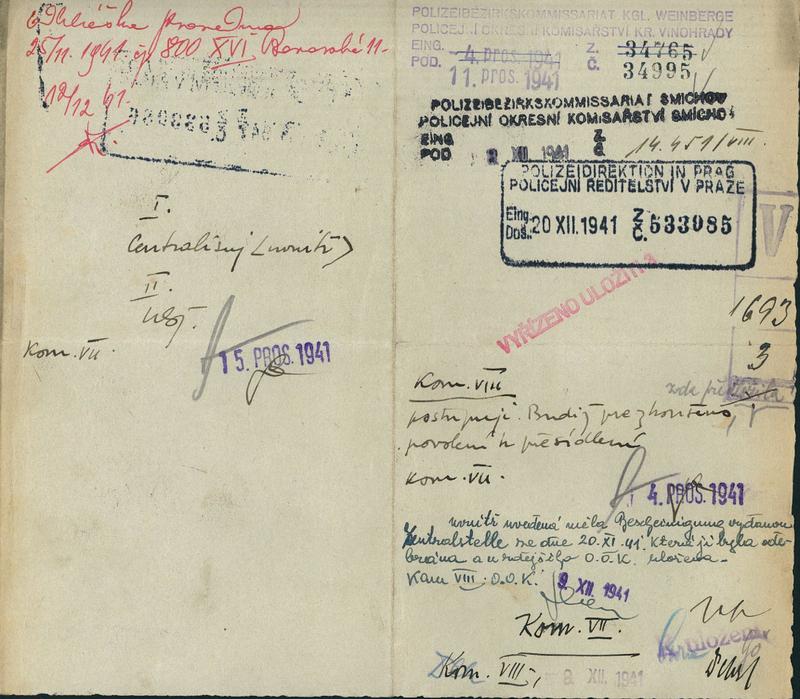 25/11. 1941 čj 800 XVI
12/12 41.
I.
Centralisuj (uvnitř)
II.
Kom. VII.
15. PROS. 1941
POLIZEIBEZIRKSKOMMISSARIAT KGL. WEINBERGE
POLICEJNÍ OKRESNÍ KOMISAŘSTVÍ KR. VINOHRADY
EING. 4. pros. 1941 Z. 34765
POD. 11. pros. 1941 Č. 34995
POLIZEIBEZIRKSKOMMISSARIAT SMICHOW
POLICEJNÍ OKRESNÍ KOMISAŘSTVÍ SMÍCHOV
EING Z
POD XII. 1941 Č 14.451/VIII.
POLIZEIDIREKTION IN PRAG
POLICEJNÍ ŘEDITELSTVÍ V PRAZE
Eing. Z
Doš. 20 XII. 1941 Č. 533085
V
VYŘÍZENO ULOŽITI
1693
3
Kom. VIII
postupuji. Budiž přezkoušeno,
povolení k přesídlení
Kom. VII.
4. PROS. 1941
uvnitř uvedená měla Bescheinigung vydanou
Zentralstelle ze dne 20. XI. 41. která jí byla ode-
brána a u zdejšího O.O.K. uložena.
Kom VIII. O.O.K. 9 XII. 1941
Kom. VII.
Kom. VIII, XII. 1941